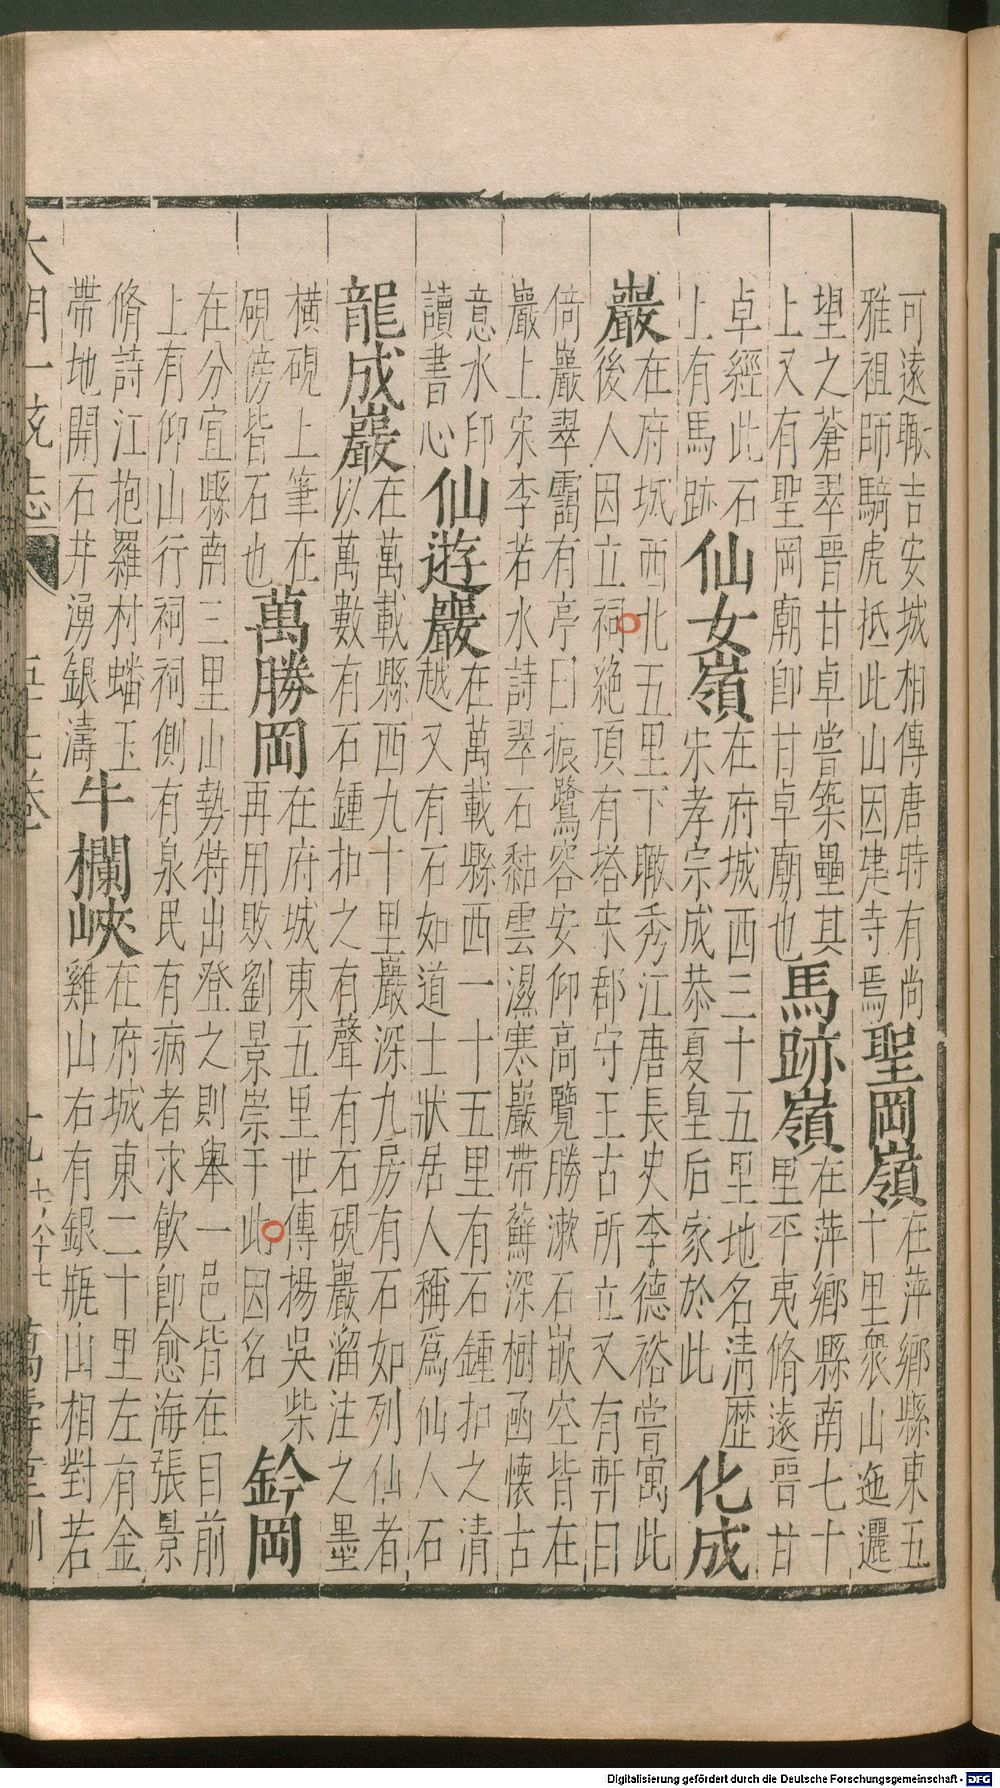 可遠瞰吉安城相傳唐時有尚
雅祖師騎虎抵此山因建寺焉
聖岡嶺
在萍鄉縣東五
十里衆山迤邐
望之蒼翠晉甘卓嘗築壘其
上又有聖岡廟卽甘卓廟也
馬跡嶺
在萍鄉縣南七十
里平夷脩遠晉甘
卓經此石
上有馬跡
仙女嶺
在府城西三十五里地名清歷
宋孝宗成恭夏皇后家於此
化成
巖
在府城西北五里下瞰秀江唐長史李德裕嘗寓此
後人因立祠絶頂有塔宋郡守王古所立又有軒曰
倚巖翠靄有亭曰振鷺容安仰高覽勝漱石嵌空皆在
巖上宋李若水詩翠石黏雲濕寒巖帶蘚深樹函懷古
意水印
讀書心
仙遊巖
在萬載縣西一十五里有石鍾扣之清
越又有石如道士狀居人稱爲仙人石
龍成巖
在萬載縣西九十里巖深九房有石如列仙者
以萬數有石鍾扣之有聲有石硯巖溜注之墨
橫硯上筆在
硯傍皆石也
萬勝岡
在府城東五里世傳揚吳柴
再用敗劉景崇于此因名
鈐岡
在分宜縣南三里山勢特出登之則舉一邑皆在目前
上有仰山行祠祠側有泉民有病者求飲卽愈海張景
脩詩江抱羅村蟠玉
帶地開石井湧銀濤
牛欄峽
在府城東二十里左有金
雞山右有銀瓶山相對若
大明一統志
五十七卷
十九
萬壽堂刊
Digitalisierung gefördert durch die Deutsche Forschungsgemeinschaft - DFG